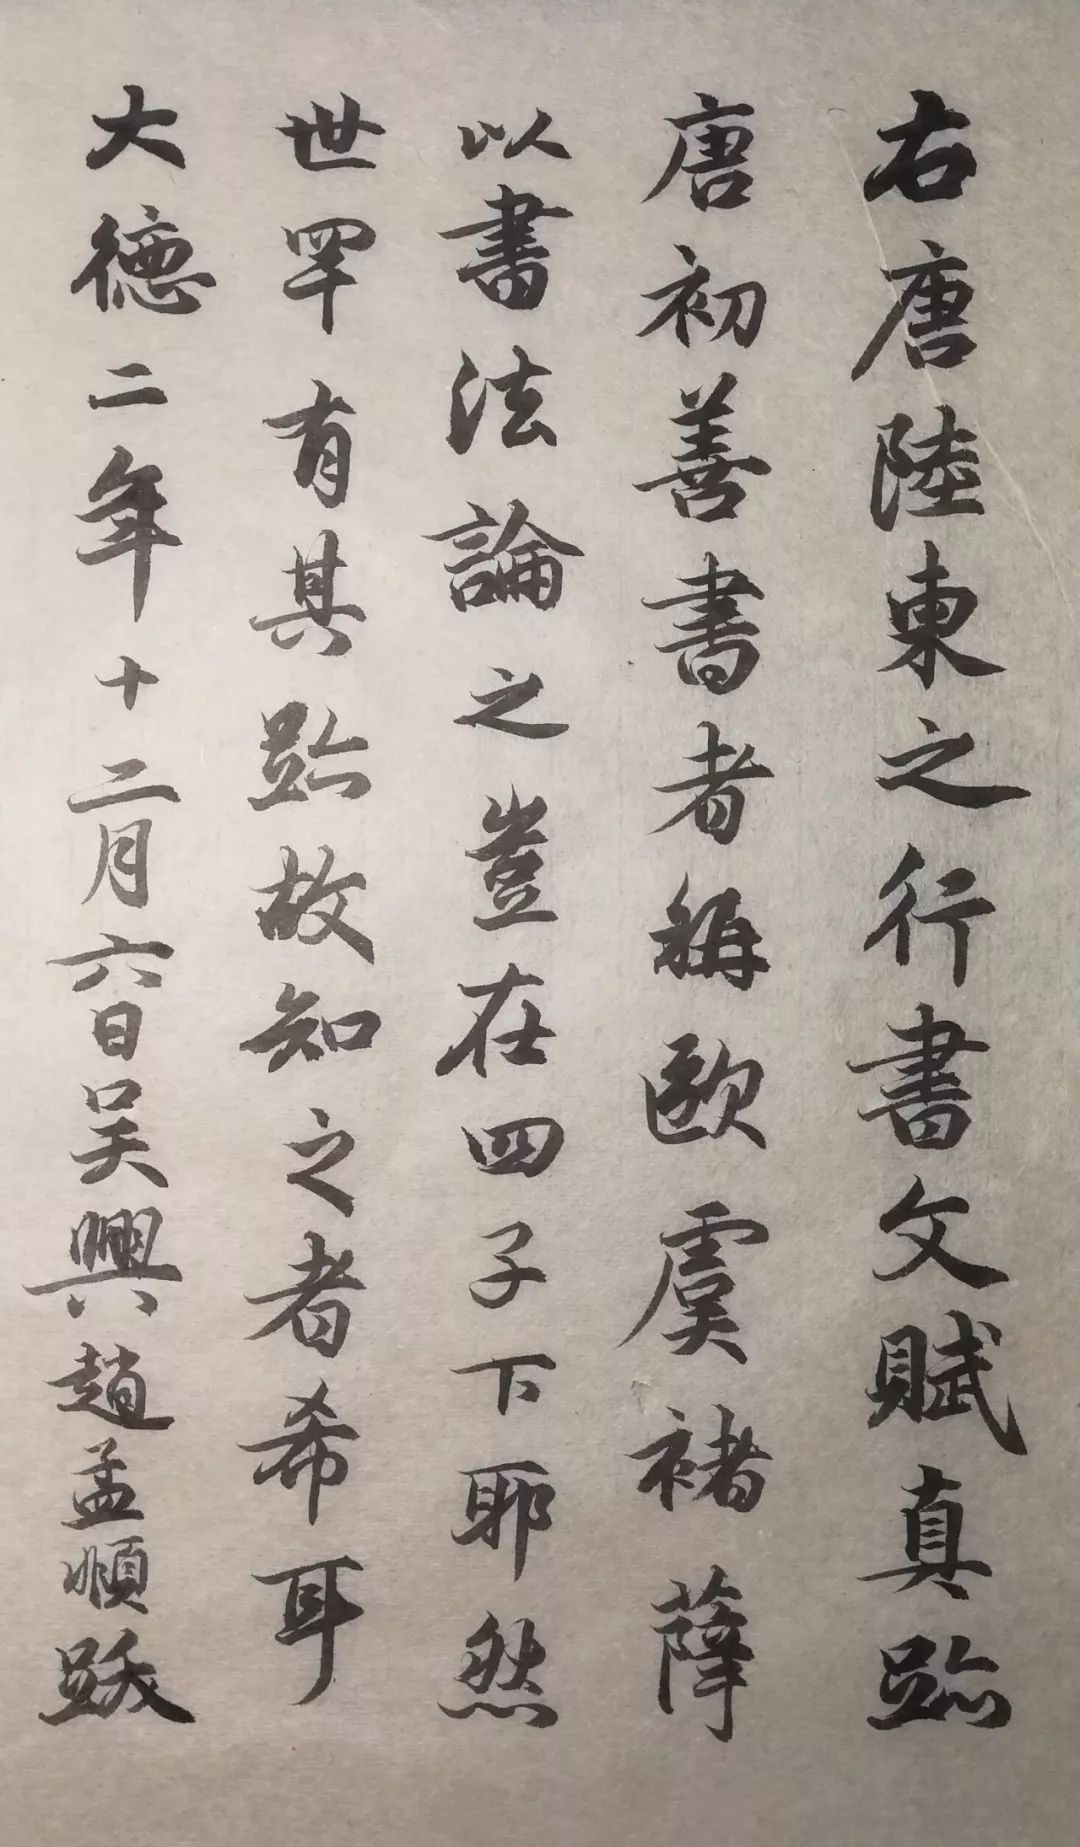 右唐陸東之行書文賦真跡
唐初善書者稱歐虞褚薛
以書法論之豈在四子下耶然
世罕有其跡故知之者希耳
大德二年十二月六日吴興趙孟順跋